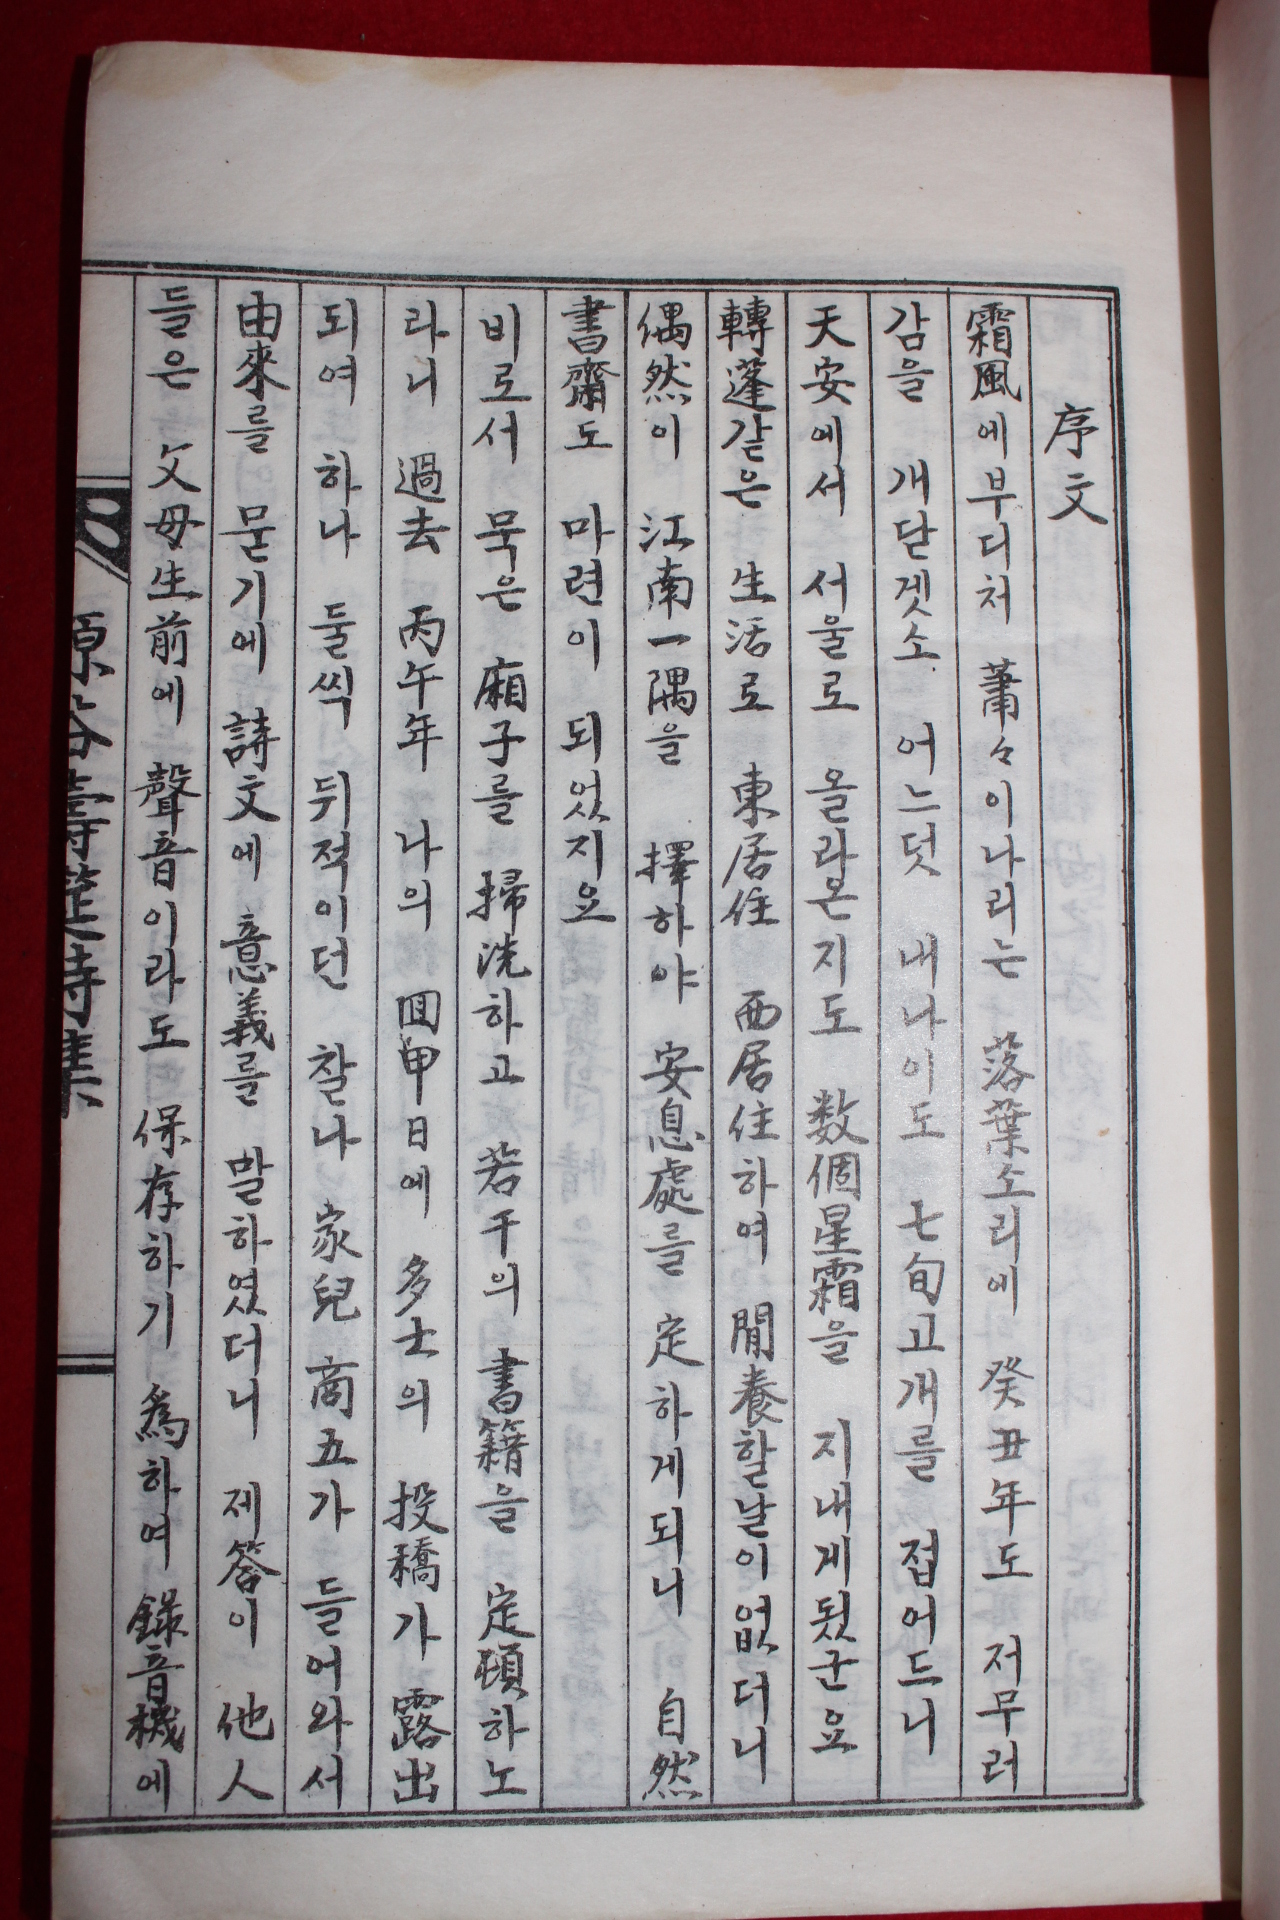 序文
霜風에부디처 蕭々이나리는 落葉소리에 癸丑年도 저무러
감을 개닫겟소 어느덧 내나이도 七旬고개를 접어드니
天安에서 서울로 올라온지도 数個星霜을 지내게됬군요
轉蓬같은 生活로 東居住 西居住하여 閒養할날이없더니
偶然이 江南一隅을 擇하야 安息處를 定하게되니 自然
書齋도 마련이 되었지요
비로서 묵은 廂子를 掃洗하고 若干의 書籍을 定頓하노
라니 過去 丙午年 나의 回甲日에 多士의 投稿가 露出
되여 하나 둘씩 뒤적이던 찰나 家兒 商五가 들어와서
由來를 묻기에 詩文에 意義를 말하였더니 제答이 他人
들은 父母生前에 聲音이라도 保存하기 爲하여 錄音機에
壽筵詩集